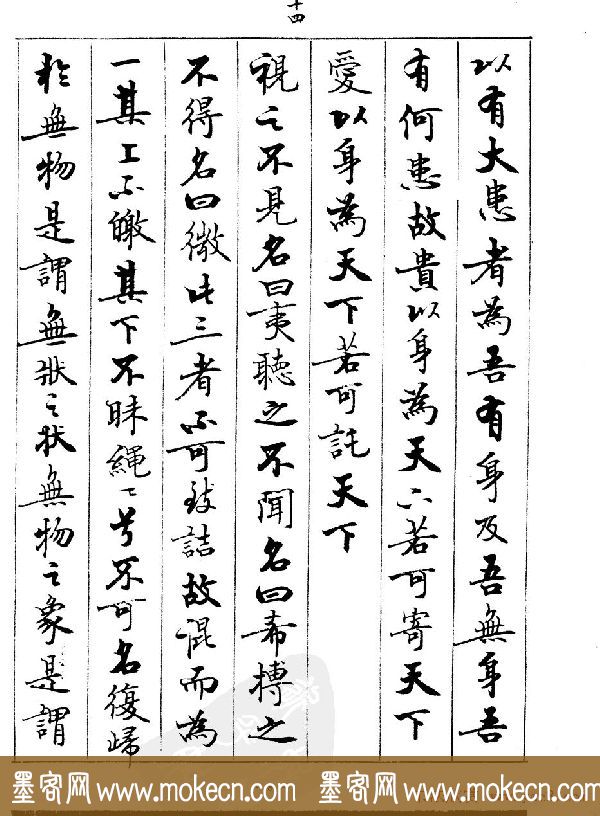 十四
以有大患者為吾有身及吾無身吾
有何患故貴以身為天下若可寄天下
愛以身為天下若可託天下
視之不見名曰夷聽之不聞名曰希搏之
不得名曰微此三者不可致詰故混而為
一其上不皦其下不昧繩〻兮不可名復歸
於無物是謂無狀之狀無物之象是謂
墨客网 www.mokecn.com 墨客网 www.mokecn.com